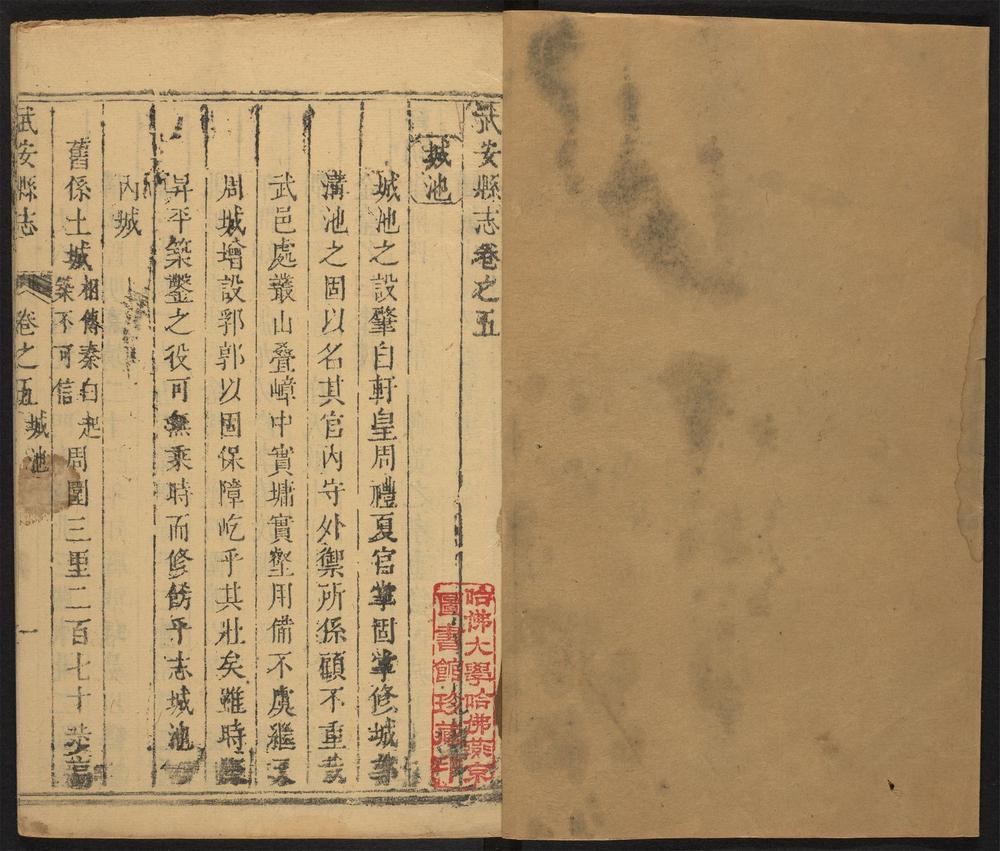 武安縣志卷之五
城池
城池之設肇自軒皇周禮夏官掌固掌修城郭
溝池之固以名其官內守外禦所係顧不重哉
武邑處叢山疊嶂中實墉實壑用備不虞繼又
周城增設郛郭以固保障屹乎其壯矣雖時
昇平築鑿之役可無乘時而修飭乎志城池
內城
舊係土城相傳秦白起築不可信周圍三里二百七十步高
武安縣志 卷之五 城池 一
哈佛大學哈佛燕京
圖書館珍藏印